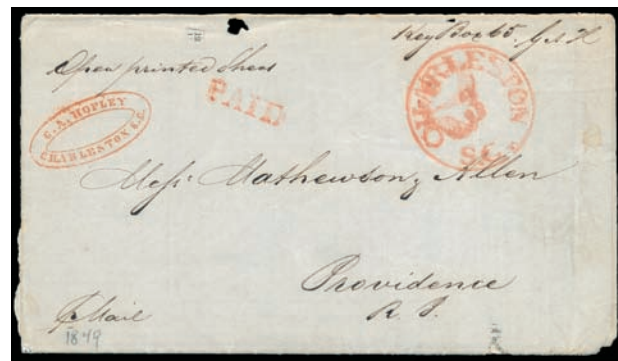 Key Box 65.
Open printed Sheet
PAID
CHARLESTON
S.C.
G.A. HOPLEY
CHARLESTON S.C.
Mess Mathewson & Allen
Providence
R. I.
Mail
1849